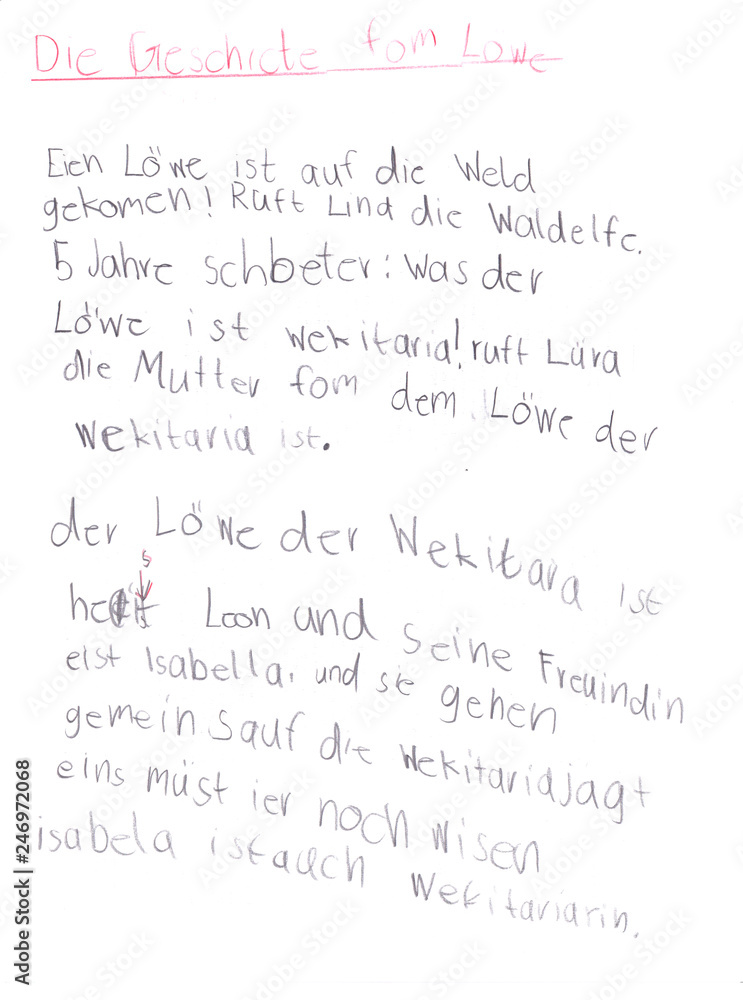 Die Geschicte fom Lowe
Eien Löwe ist auf die Weld
gekomen! Ruft Lind die Waldelfe.
5 Jahre schbeter: Was der
Löwe ist wekitaria! ruft Lura
die Mutter fom dem Löwe der
wekitaria ist.
der Löwe der Wekitara ist
s
heit Loon und seine Freuindin
eist Isabella. und sie gehen
gemeinsauf die wekitariajagt
eins müst ier noch wisen
isabela ist auch wekitariarin.
Adobe Stock | #246972068